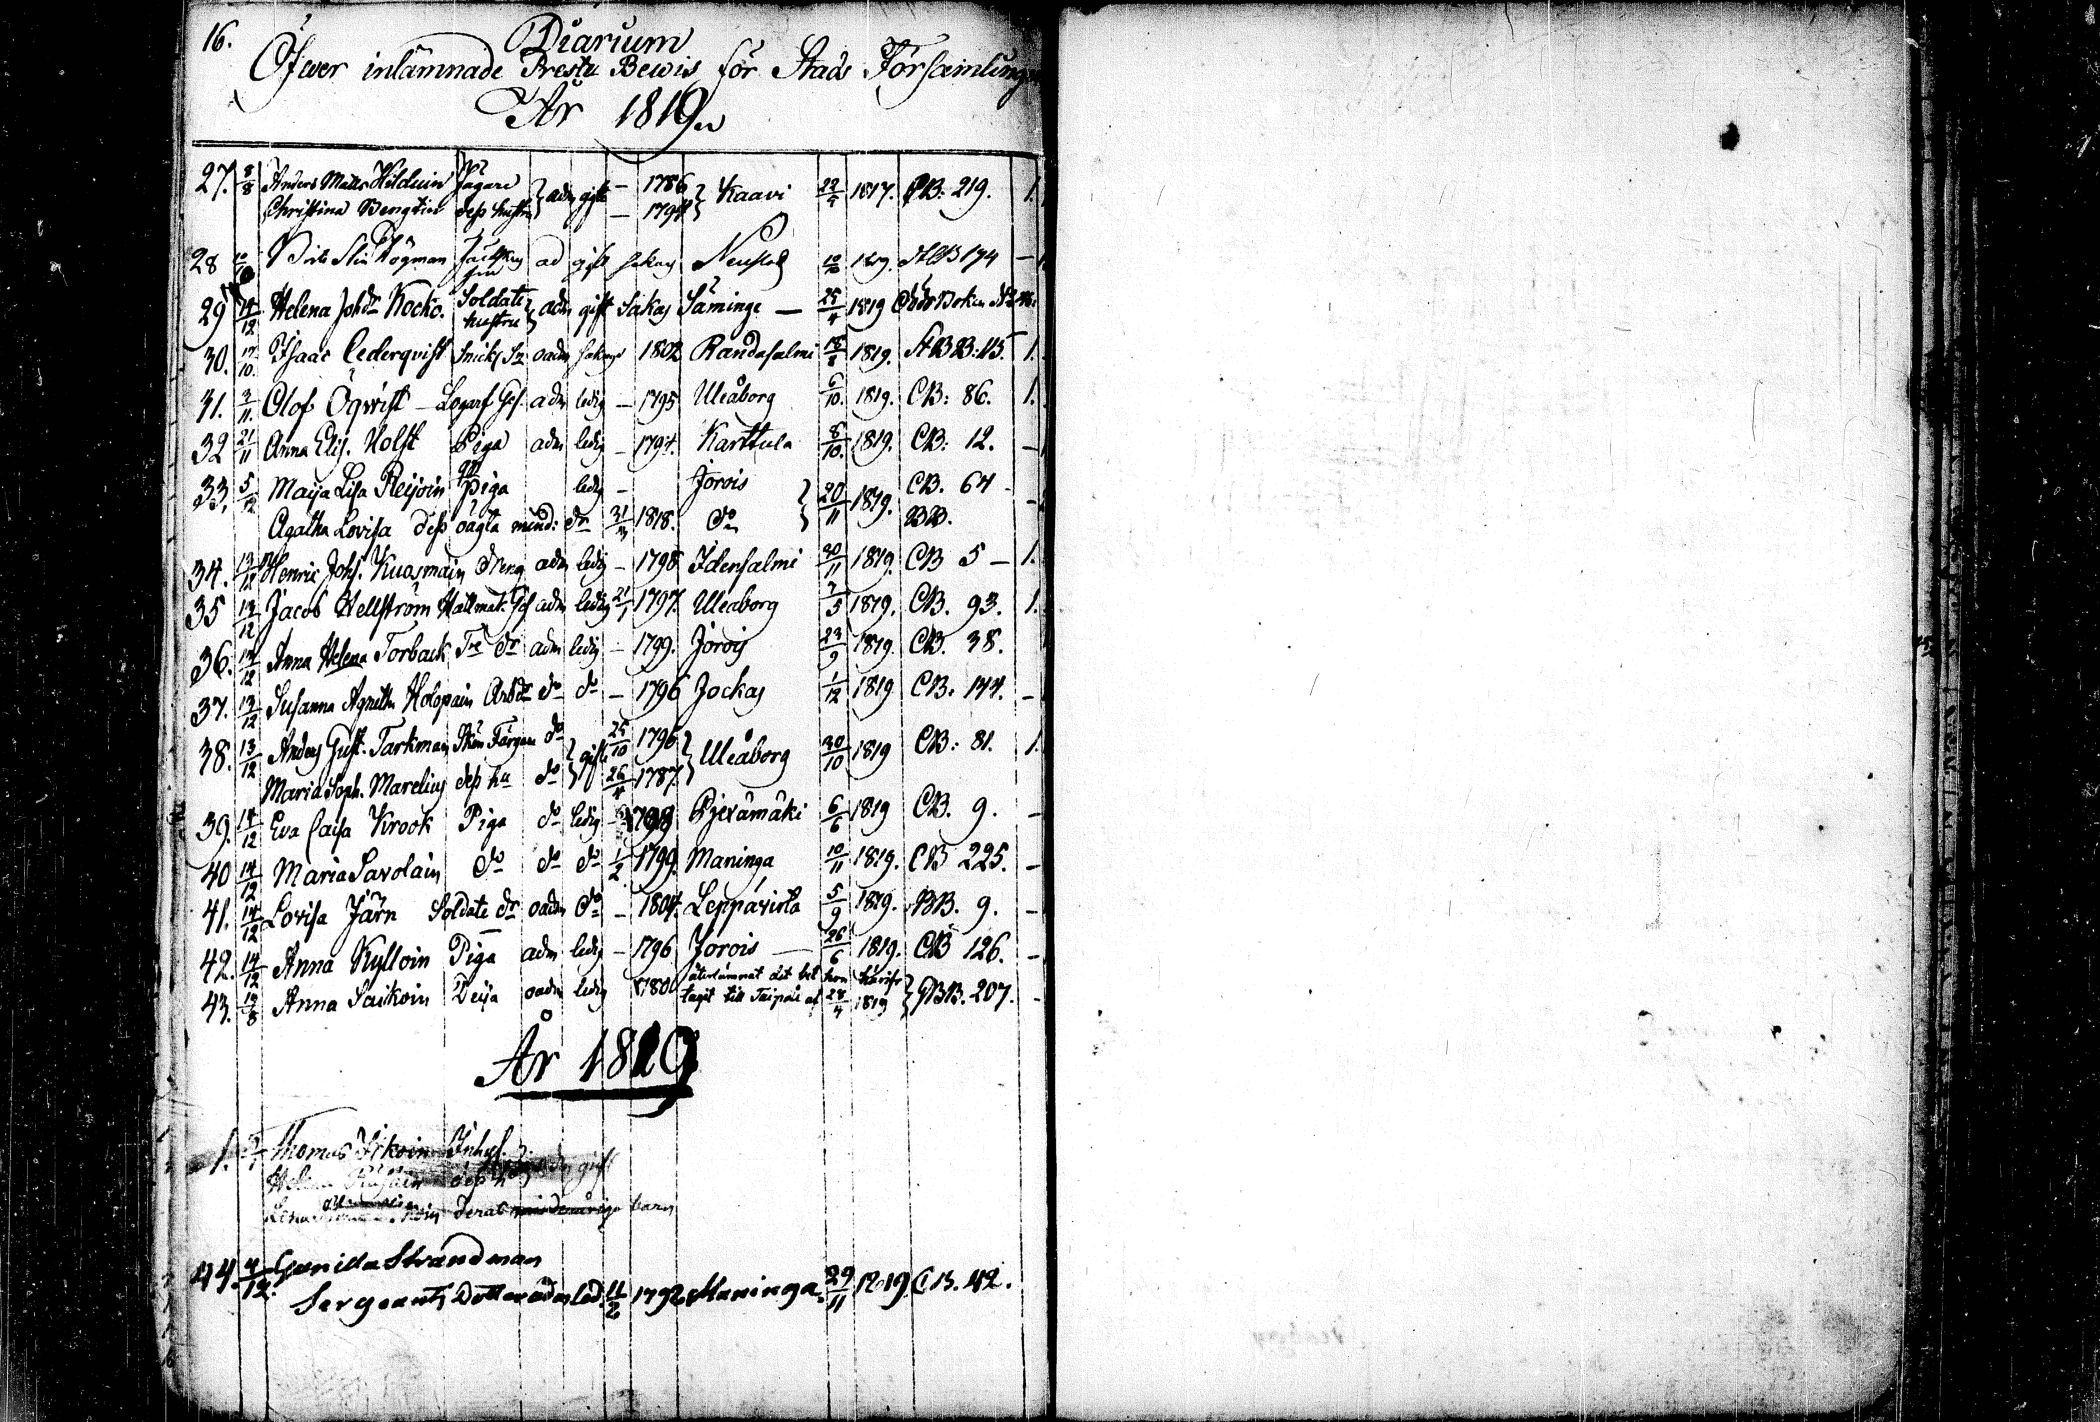 16.
Diarium
Öfwer inlämnade Preste Bewis för Stads Församlingen
År 1819.
27. 8/8 Anders Matts Hilduin Jägare } adm gifte — 1786 } Kaavi 22/7 1817. CB: 219. 1.
Christina Bengtin dess hustru — 1794
28 10/10 Brita Stin Högman ad gift sakas Neuslot 10/10 1819. AB 174 —
29 14/12 Helena Johdr Kocko. Soldats hustru } adm gift Sakas Säminge — 25/4 1819
30. 17/10. Isaac Cederqvist Snick. oadm 1802 Randasalmi 18/8 1819. BB: 115. 1.
31. 3/11. Olof Öqwist — Logarf Ges. adm ledig — 1795 Uleåborg 6/10. 1819. CB: 86. 1.
32 21/11 Anna Elis. Holst Piga adm ledig — 1794. Karttula 8/10. 1819. CB: 12. —
33. 5/12 Maija Lisa Reijoin piga ledig — Jorois } 20/11 1819. CB. 64 —
Agatha Lovisa dess oägta mind: dr 31/3 1818. do BB.
34. 13/12 Henric Johs. Kuosmain dreng adm ledig — 1798 Idensalmi 30/11 1819. CB 5 — 1.
35 13/12 Jacob Hellström Hattmak. Ges adm ledig 21/1 1797. Uleåborg 7/5 1819. CB. 93. 1.
36. 14/12 Anna Helena Torback dr adm ledig — 1799. Jorois 23/9 1819. CB. 38.
37. 13/12 Susanna Agneta Holopain do do — 1796 Jockas 1/12 1819 CB. 144. —
38. 13/12 Anders Gust. Tarkman Skön Färgare do } gifte 25/10 1796 } Uleåborg 30/10 1819 CB: 81. 1.
Maria Soph. Marelius dess hu do 26/4 1787.
39. 14/12 Eva Caisa Krook Piga do ledig — 1798 Pjexämäki 6/6 1819 CB. 9. —
40 14/12 Maria Savolain do do do 1/2. 1799. Maninga 10/11 1819. CB 225. —
41. 14/12 Lovisa Järn Soldats dr oadm do — 1804. Leppävirta 5/9 1819. BB. 9. —
42. 14/12 Anna Kylloin Piga adm ledig — 1796 Jorois — 26/6 1819. CB 126. —
43. 13/8 Anna Saikoin Deija oadm ledig 1780 återlämnat det bet hon härifr } BB. 207. —
tagit till Taipale af 28/4 1819
År 1820
1. Thomas Itkoin Inhys.
Helena Räsäin dess hu gift
Lena deras minderåriga barn
44. 4/12. Gunilla Strandman
Sergeants Dotter adm led. 11/2 1792 Maninga. 29/11 1819 CB. 42.